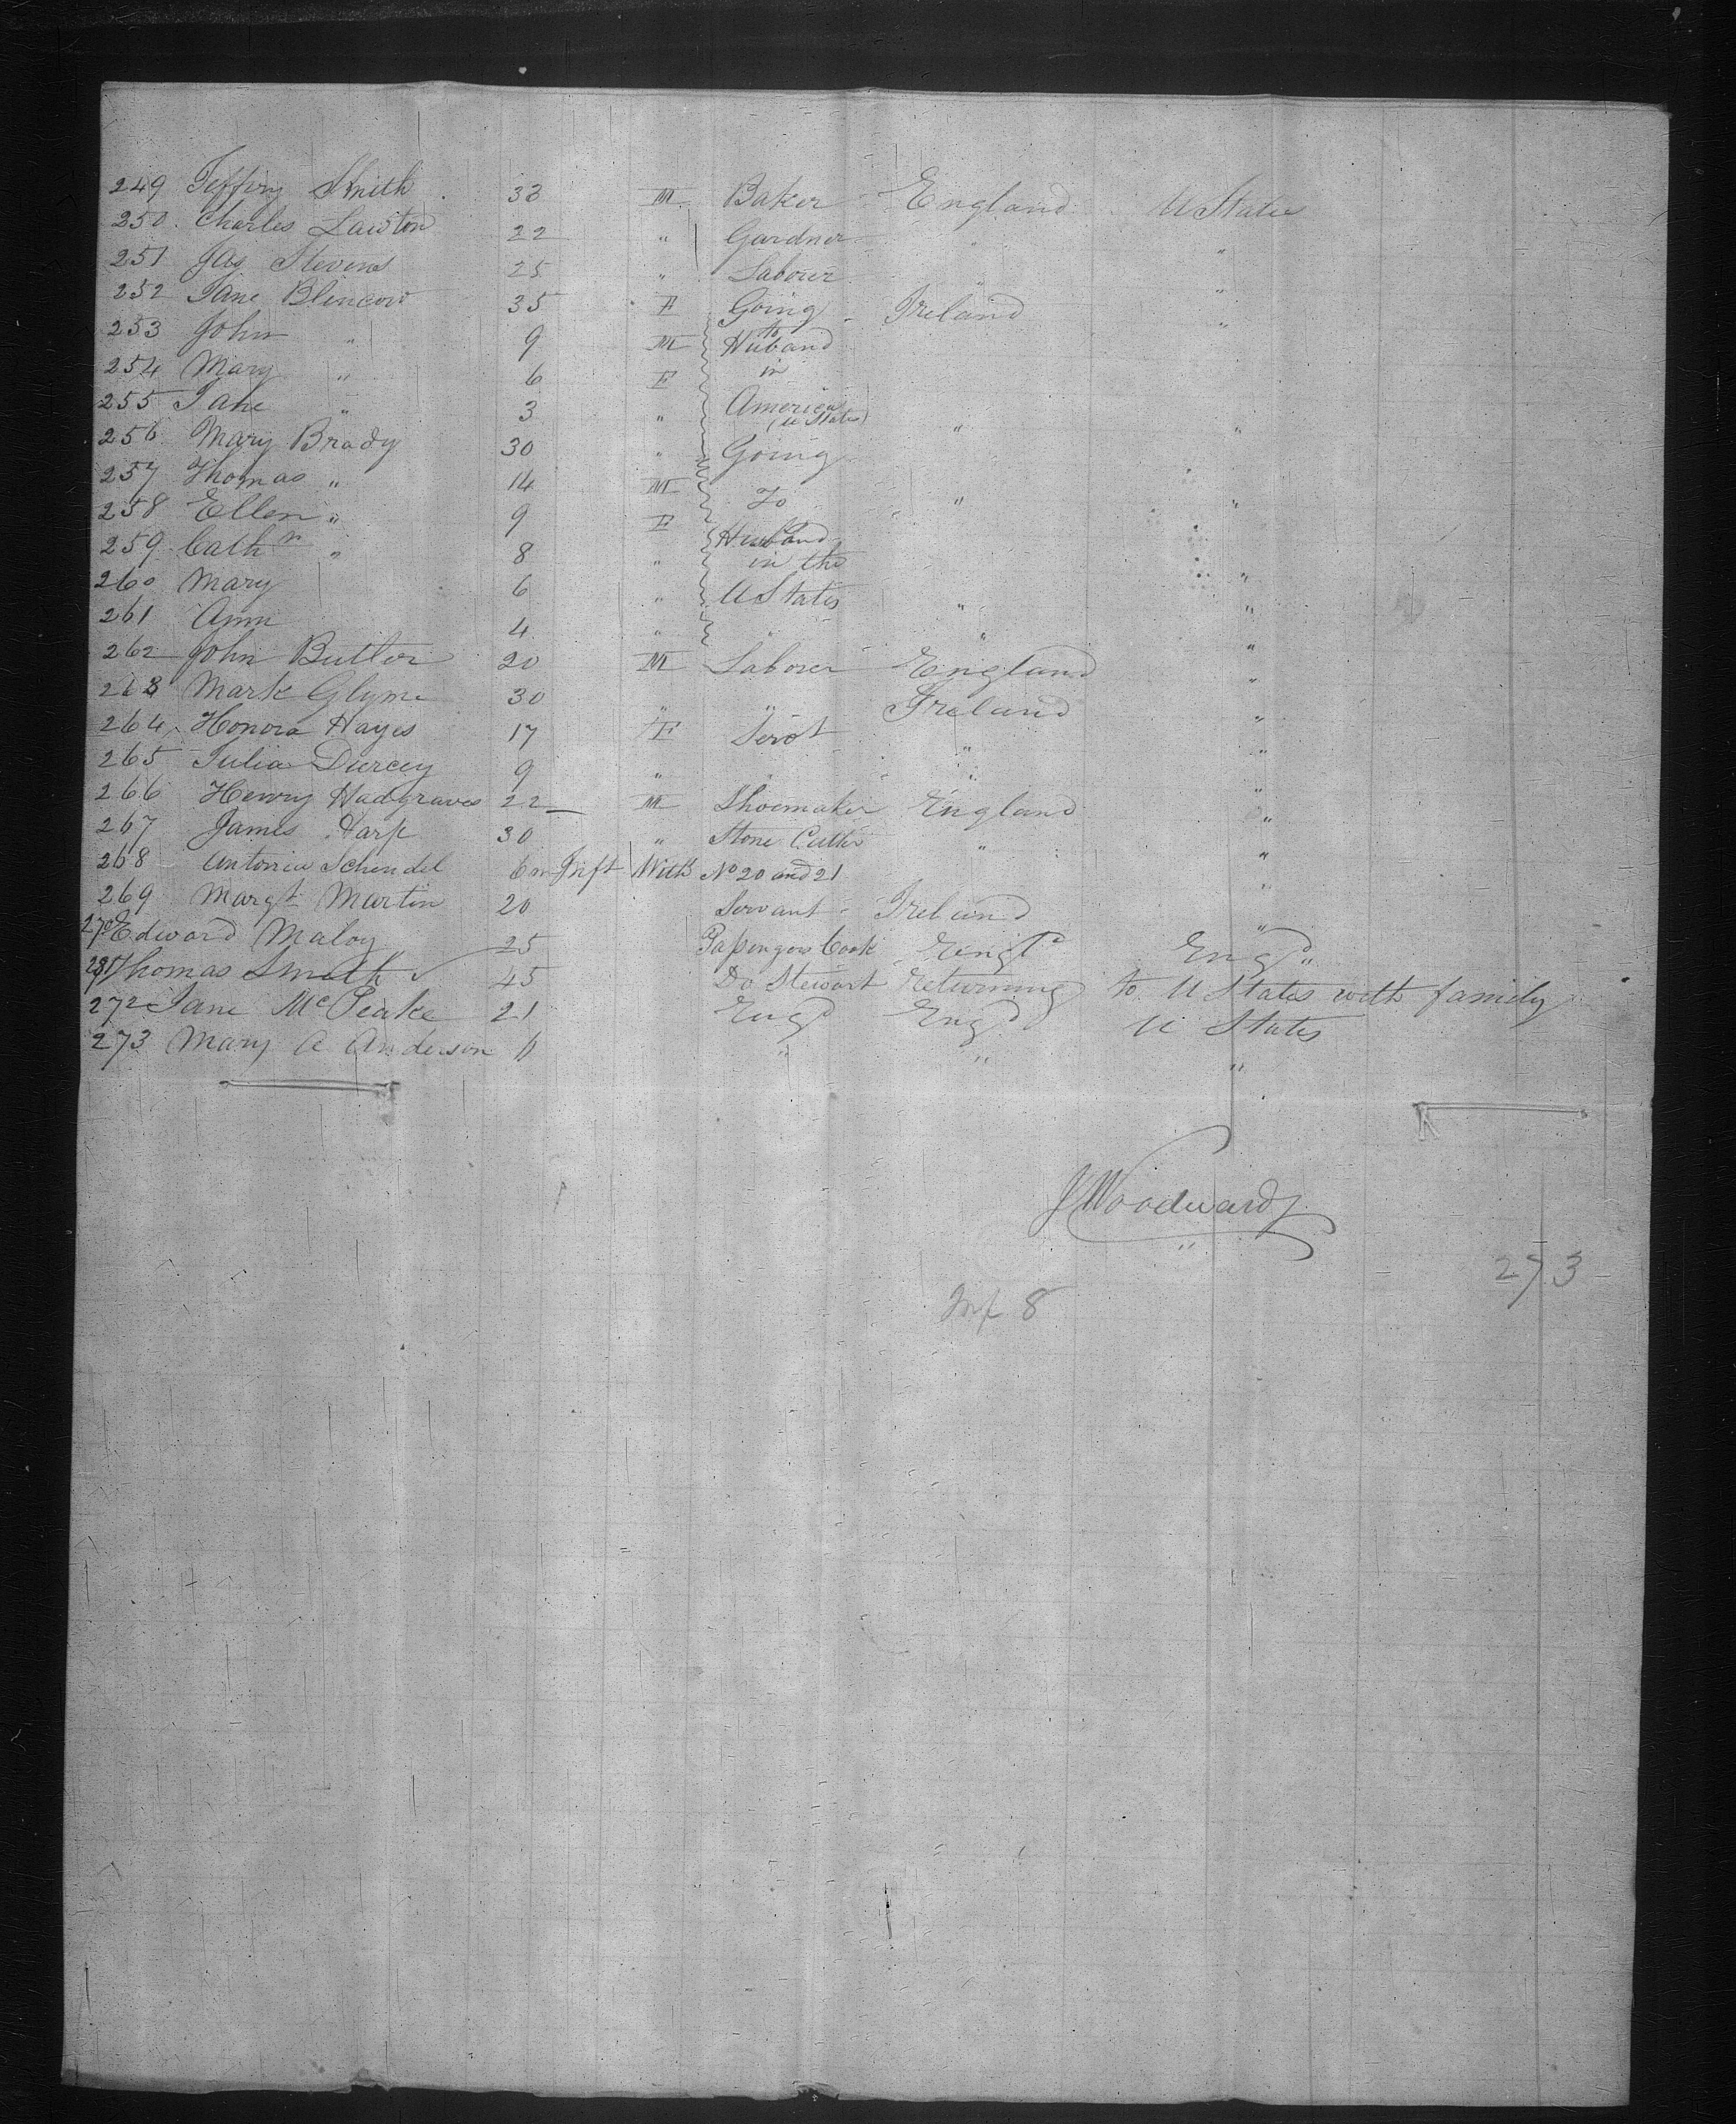 249 Jeffery Smith 33 M Baker England U States
250 Charles Lawton 22 " Gardner " "
251 Jas Stevens 25 " Labourer " "
252 Jane Blincow 35 F Going Ireland "
253 John " 9 M to Husband
254 Mary " 6 F in
255 Jane " 3 " America (U States) " "
256 Mary Brady 30 " Going
257 Thomas " 14 M To " "
258 Ellen " 9 F Husband
259 Cathn " 8 " in the "
260 Mary 6 " U States " "
261 Ann 4 " " " "
262 John Butler 20 M Laborer England "
263 Mark Glynn 30 " " Ireland "
264 Honora Hayes 17 F Servt " "
265 Julia Durcey 9 " " " "
266 Henry Hadgraves 22 M Shoemaker England "
267 James Harp 30 " Stone Cutter " "
268 Antonia Schindel 6 m Inft With No 20 and 21 "
269 Margt Martin 20 Servant Ireland "
270 Edward Maloy 25 Passengers Cook Engd Engd "
271 Thomas Smith 45 Do Stewart Returning to U States with family
272 Jane McPeake 21 Engd Engd U States
273 Mary A Anderson 11 " " "
J Woodward
273
Inf 8